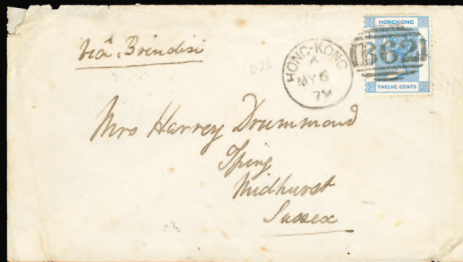 Viâ Brindisi
HONG-KONG
A
MY 6
79
HONGKONG
B62
TWELVE CENTS
Mrs Harvey Drummond
Iping
Midhurst
Sussex